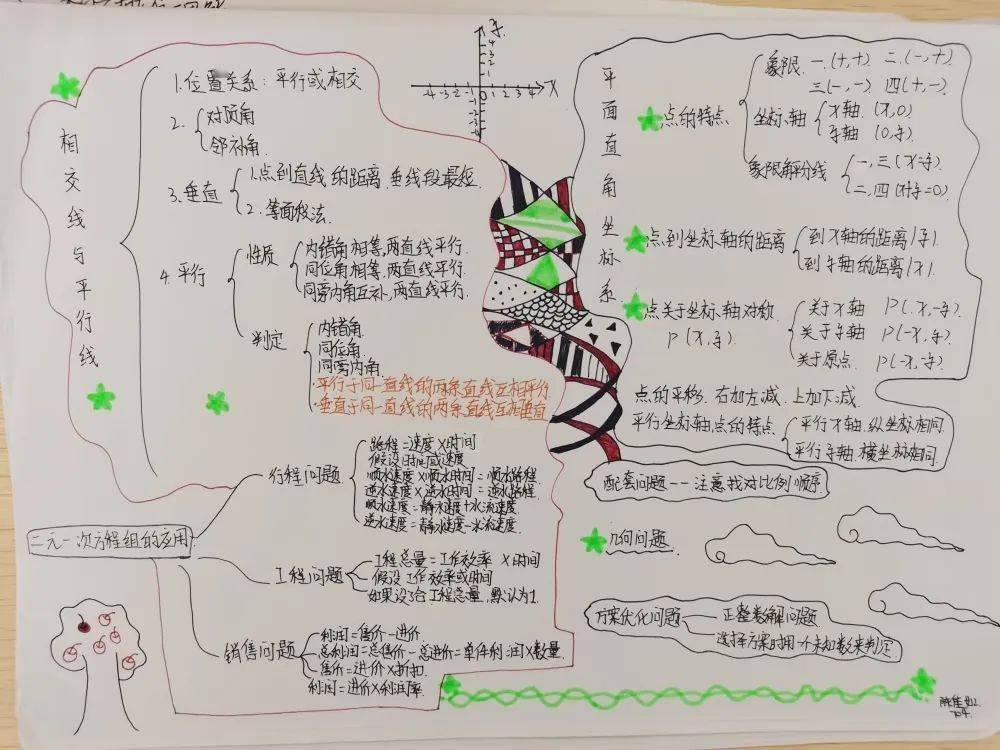 相交线与平行线
1.位置关系：平行或相交
2.
对顶角
邻补角
3.垂直
1.点到直线的距离.垂线段最短.
2.等面积法.
4.平行
性质
内错角相等,两直线平行.
同位角相等,两直线平行.
同旁内角互补,两直线平行.
判定
内错角
同位角
同旁内角.
·平行于同一直线的两条直线互相平行
·垂直于同一直线的两条直线互相垂直
-4 -3 -2 -1 0 1 2 3 4 x
平面直角坐标系
点的特点
象限
一.(+,+) 二.(-,+)
三(-,-) 四(+,-)
坐标轴
x轴 (x,0)
y轴 (0,y)
象限角平分线
一,三(x=y)
二,四(x+y=0)
点到坐标轴的距离
到x轴的距离|y|
到y轴的距离|x|
点关于坐标轴对称
P(x,y)
关于x轴 P(x,-y)
关于y轴 P(-x,y)
关于原点 P(-x,-y)
点的平移.右加左减.上加下减
平行坐标轴点的特点
平行x轴.纵坐标相同.
平行y轴.横坐标相同
二元一次方程组的应用
行程问题
路程=速度×时间
假设时间或速度
顺水速度×顺水时间=顺水路程
逆水速度×逆水时间=逆水路程
顺水速度=静水速度+水流速度
逆水速度=静水速度-水流速度
工程问题
工程总量=工作效率×时间
假设工作效率或时间
如果没给工程总量,默认为1.
销售问题
利润=售价-进价.
总利润=总售价-总进价=单件利润×数量
售价=进价×折扣.
利润=进价×利润率.
配套问题--注意找对比例顺序
几何问题
方案优化问题
正整数解问题
选择方案时用一个未知数来判定